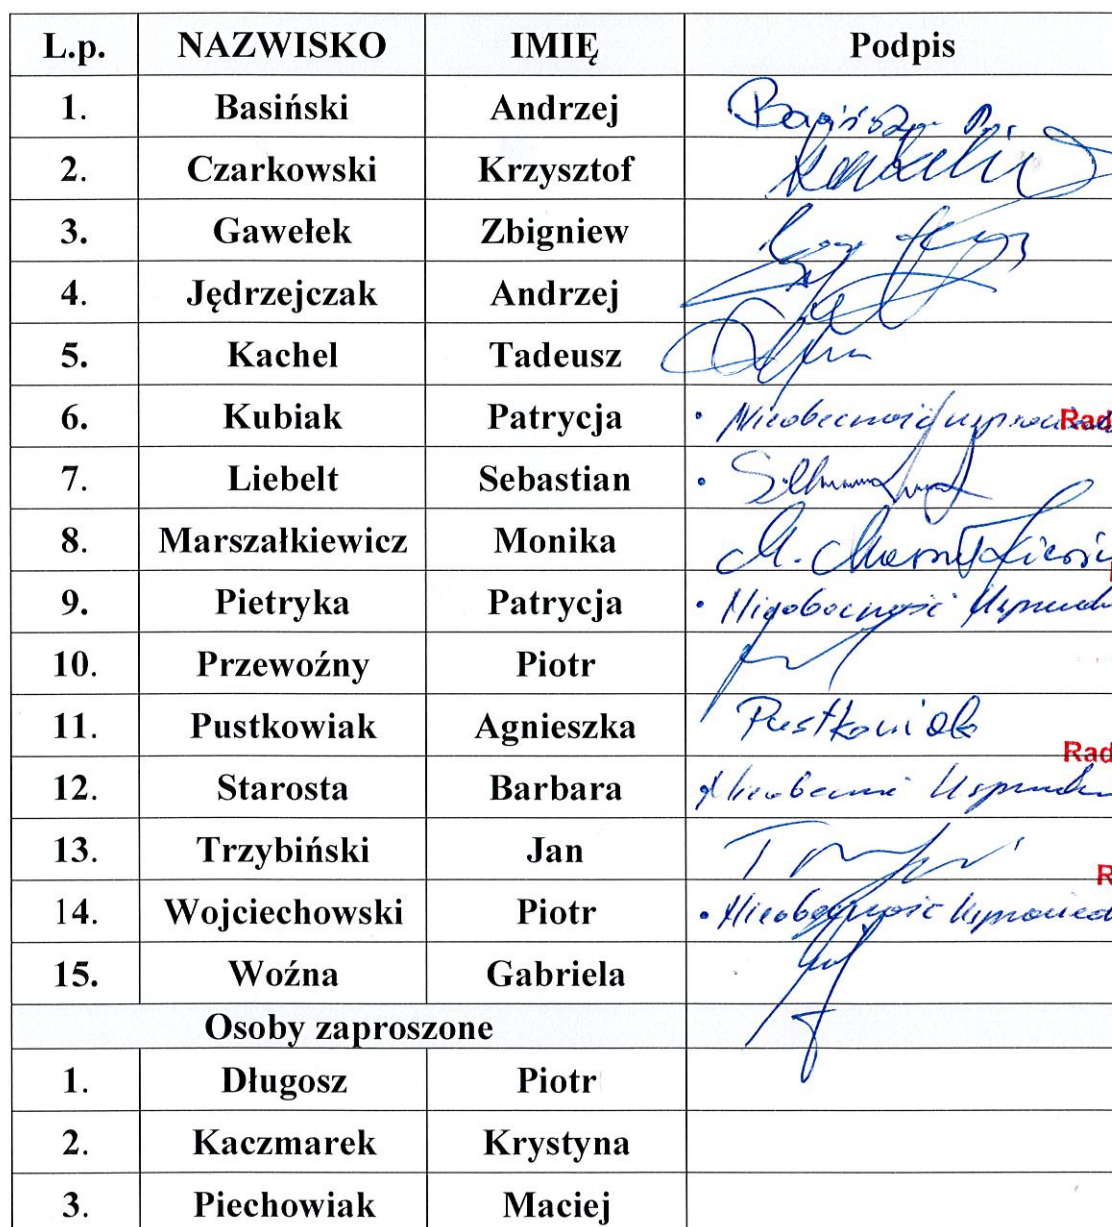 L.p. NAZWISKO IMIĘ Podpis
1. Basiński Andrzej
2. Czarkowski Krzysztof
3. Gawełek Zbigniew
4. Jędrzejczak Andrzej
5. Kachel Tadeusz
6. Kubiak Patrycja Nieobecność Rad
7. Liebelt Sebastian
8. Marszałkiewicz Monika M.
9. Pietryka Patrycja Nieobecność
10. Przewoźny Piotr
11. Pustkowiak Agnieszka Pustkowiak
Rad
12. Starosta Barbara
13. Trzybiński Jan
R
14. Wojciechowski Piotr Nieobecność
15. Woźna Gabriela
Osoby zaproszone
1. Długosz Piotr
2. Kaczmarek Krystyna
3. Piechowiak Maciej